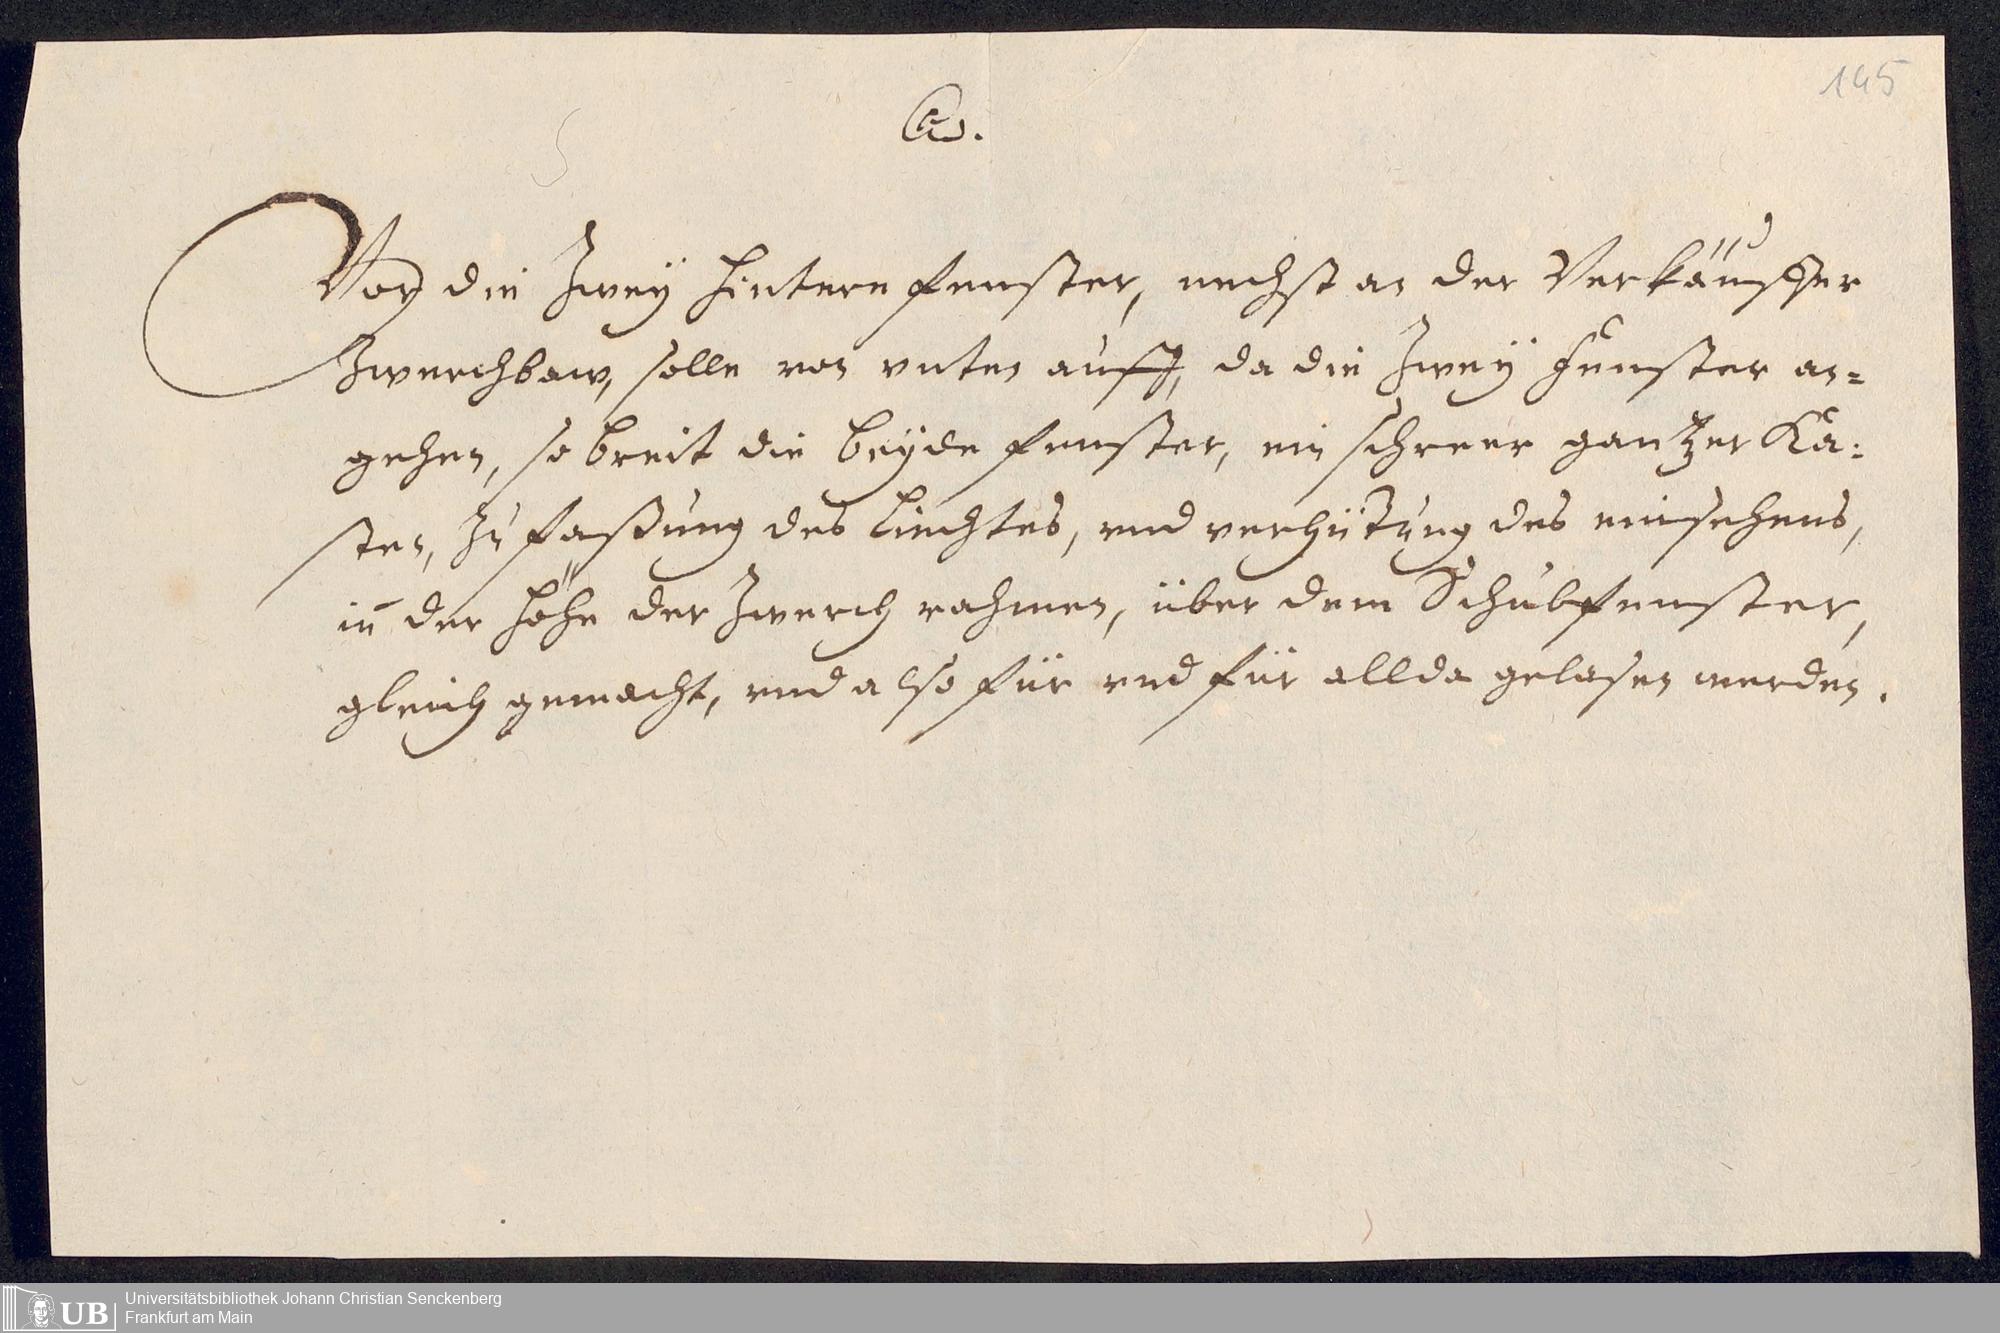 145
A.
Vor die Zwey hintere fenster, nechst an der Verkäuffer
Zwerchbaw, solle von vnten auff, da die Zwey Fenster an=
gehen, so breit die beyde fenster, ein schreer gantzer Ka:
sten, Zu faßung des Liechtes, vnd verhütung des einsehens,
in der höhe der Zwerch rahmen, über dem Schubfenster,
gleich gemacht, vnd also für vnd für allda gelasen werden.
UB
Universitätsbibliothek Johann Christian Senckenberg
Frankfurt am Main